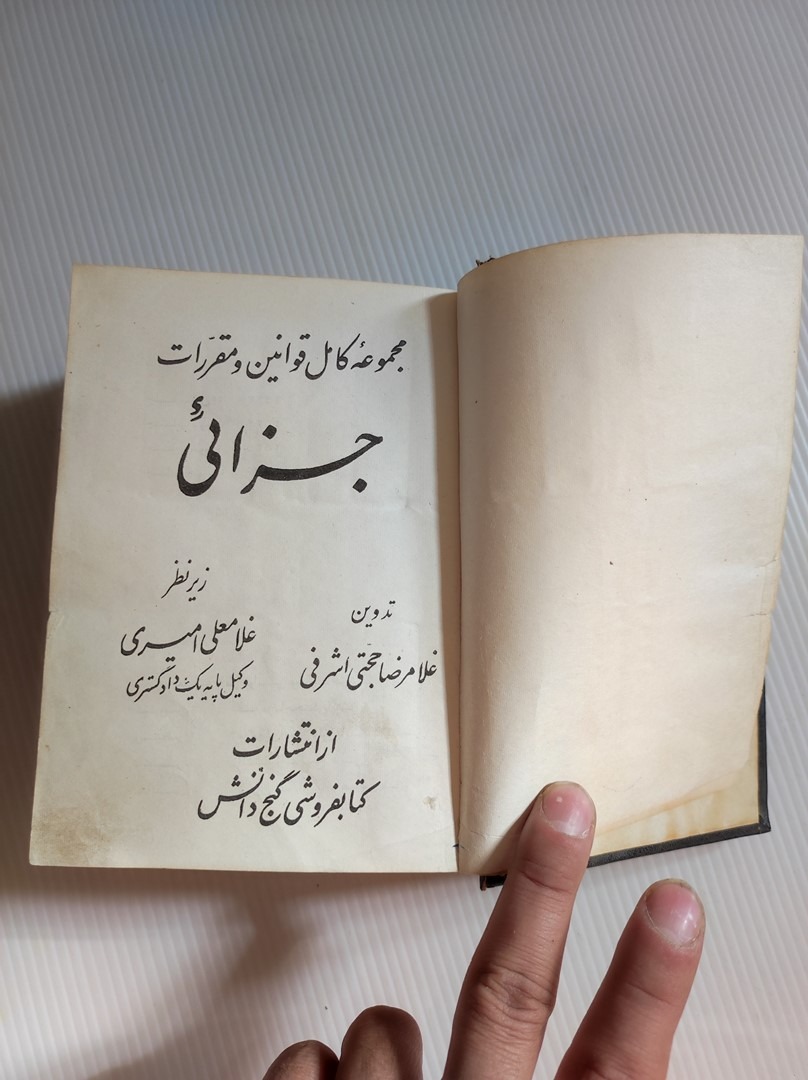 مجموعهٔ کامل قوانین و مقرّرات
جزائیٔ
تدوین
غلامرضا حجّتی اشرفی
زیر نظر
غلامعلی امیری
وکیل پایه یک دادگستری
از انتشارات
کتابفروشی گنج دانش